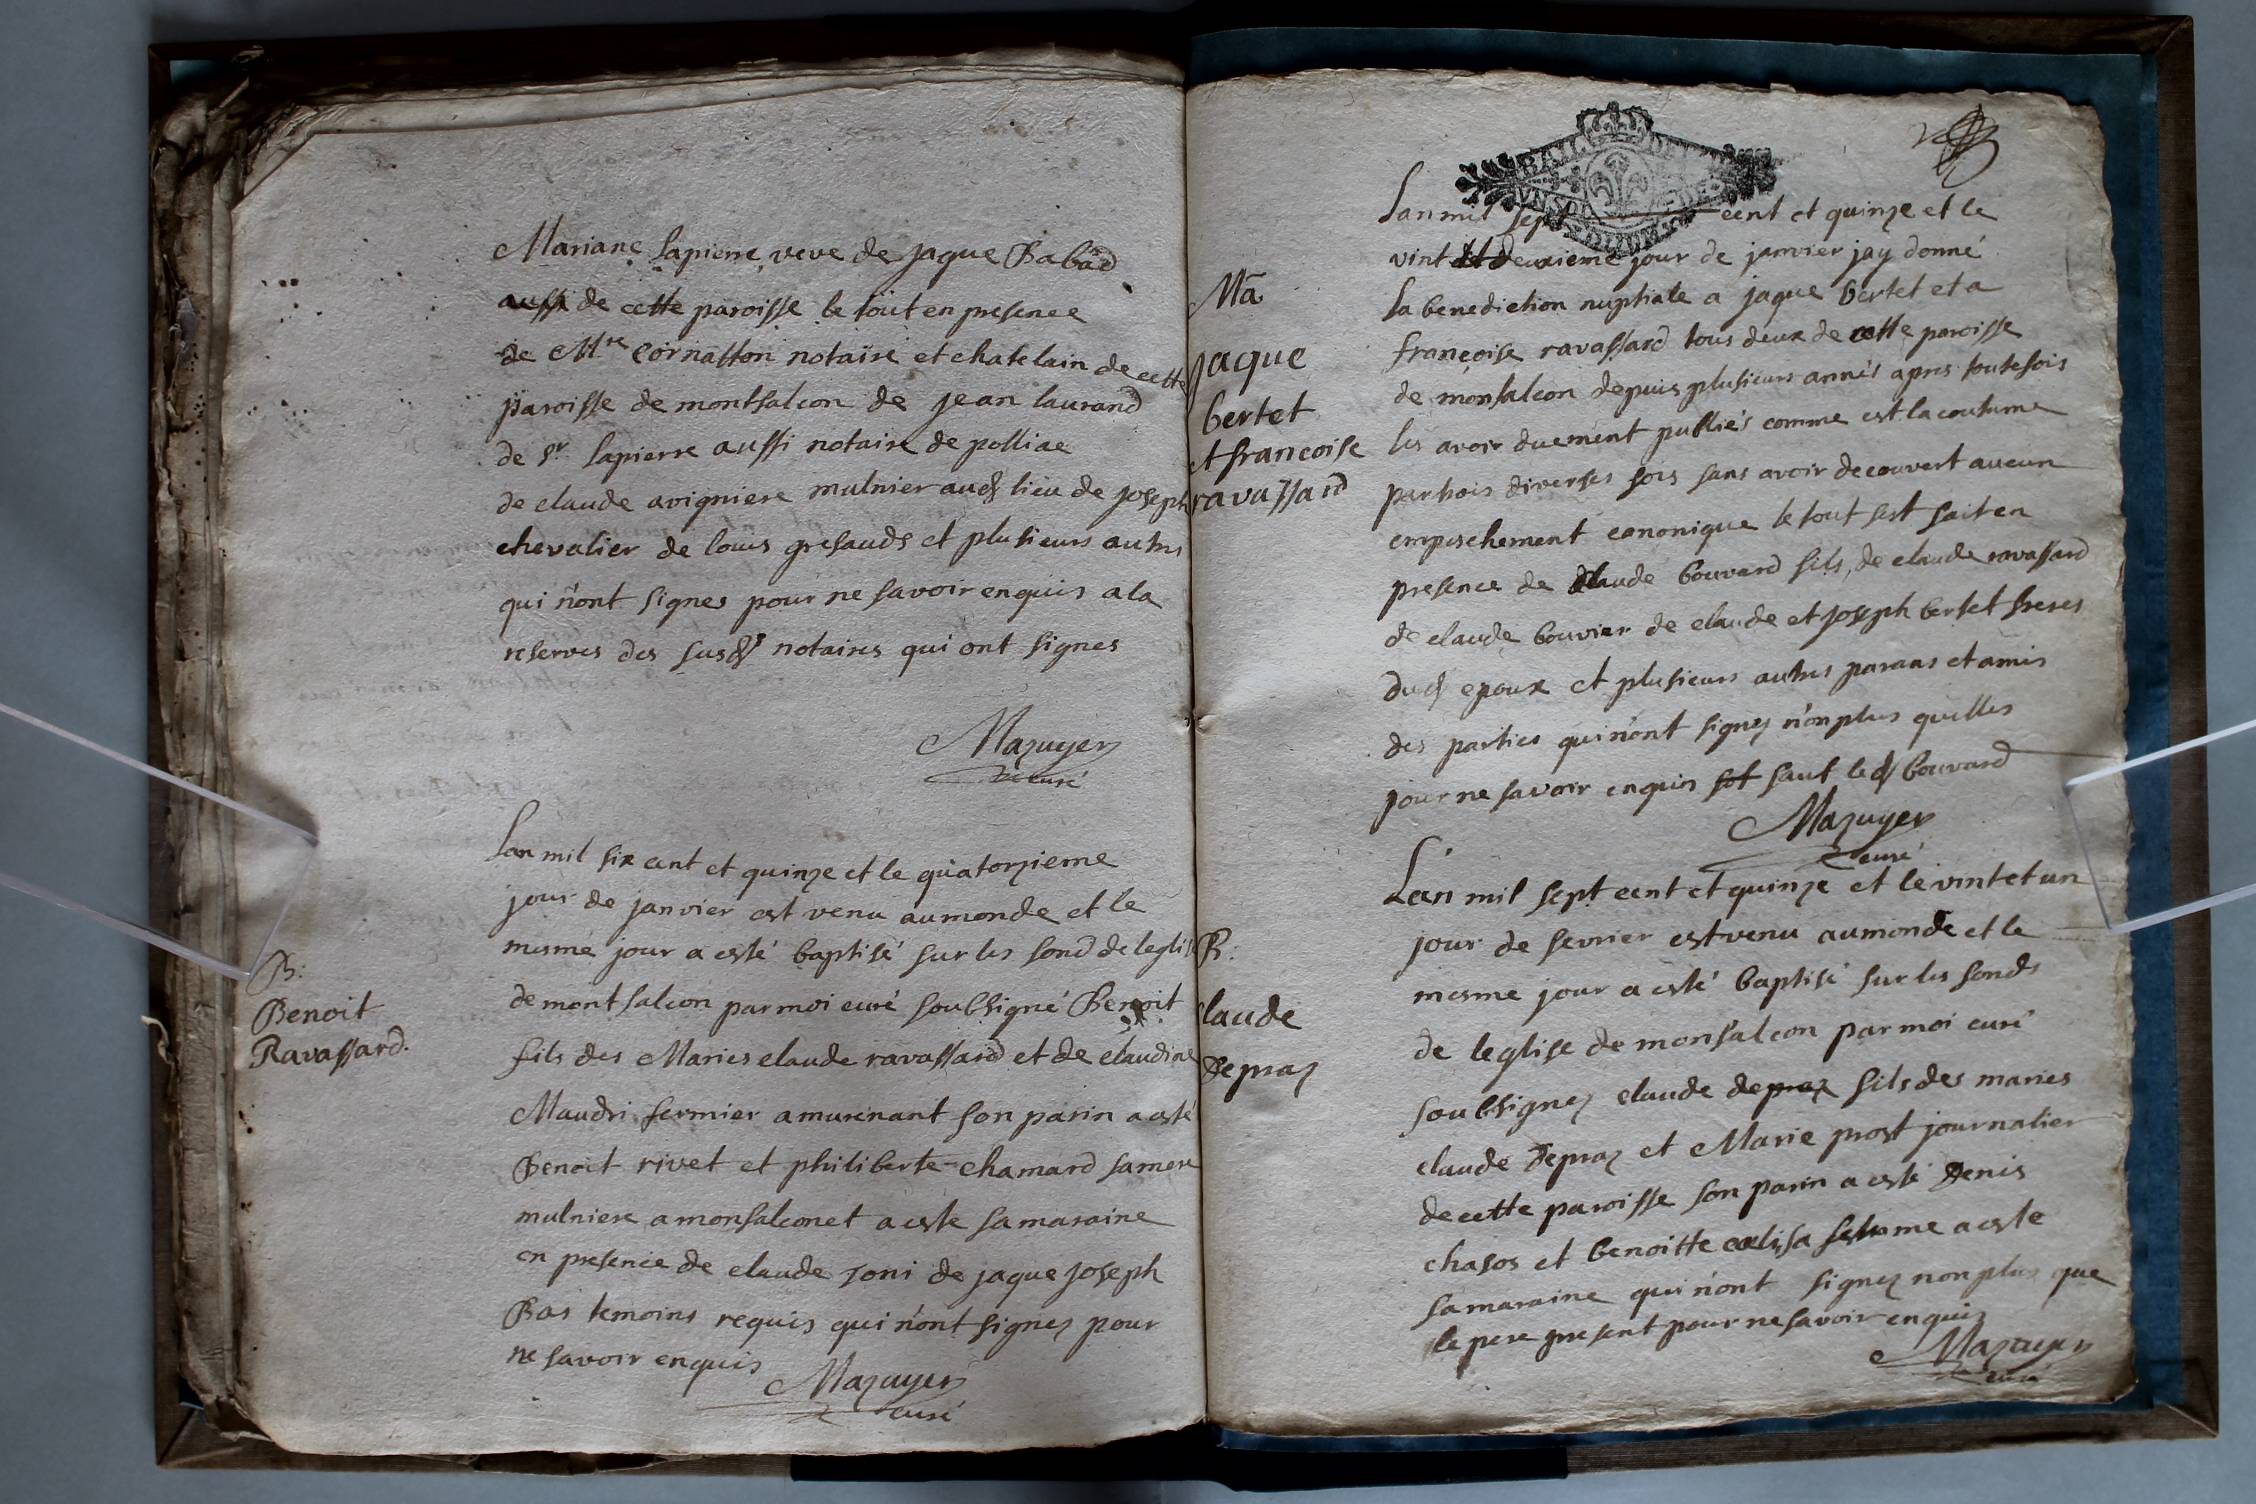 Mariane Lapierre veve de jaque Babad
aussi de cette paroisse le tout en presence
de Mtre Cornatton notaire et chatelain de cette
paroisse de montfalcon de jean laurand
de Sr lapierre aussi notaire de polliac
de claude avigniere mulnier aud lieu de joseph
chevalier de louis gresauds et plusieurs autres
qui n'ont signes pour ne savoir enquis a la
reserves des susd notaires qui ont signes
Mazuyer
curé
B:
Benoit
Ravassard.
Lan mil six cent et quinze et le quatorzieme
jour de janvier est venu au monde et le
mesme jour a esté baptisé sur les fond de leglise
de montfalcon par moi curé soubsigné Benoit
fils des Maries claude ravassard et de claudine
Maudri fermier a murenant son parin a esté
Benoit rivet et philiberte chamard sa mere
mulniere a monfalconet a este sa maraine
en presence de claude joni de jaque joseph
Bas temoins requis qui n'ont signez pour
ne savoir enquis
Mazuyer
curé
Ma
jaque
bertet
et francoise
ravassard
Lan mil sept cent et quinze et le
vint deuxieme jour de janvier jay donné
la benediction nuptiale a jaque bertet et a
francoise ravassard tous deux de cette paroisse
de monfalcon depuis plusieurs annés apres toutefois
les avoir duement publiés comme est la coutume
par trois diverses fois sans avoir decouvert aucun
empeschement canonique le tout sest fait en
presence de claude bouvard fils, de claude ravassard
de claude bouvier de claude et joseph bertet freres
dud epoux et plusieurs autres parans et amis
des parties qui n'ont signez n'on plus quelles
pour ne savoir enquis sauf le d bouvard
Mazuyer
curé
B.
claude
Depraz
Lan mil sept cent et quinze et le vint et un
jour de fevrier est venu au monde et le
mesme jour a esté baptisé sur les fonds
de leglise de monfalcon par moi curé
soubsignez claude depraz fils des maries
claude Depraz et Marie prost journalier
de cette paroisse son parin a esté Denis
chafos et benoitte calisa femme a este
sa maraine qui n'ont signez non plus que
le pere present pour ne savoir enquis
Mazuyer
curé